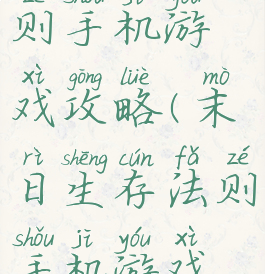 则手机游
xì gōng lüè mò
戏攻略(末
rì shēng cún fǎ zé
日生存法则
shǒu jī yóu xì
手机游戏